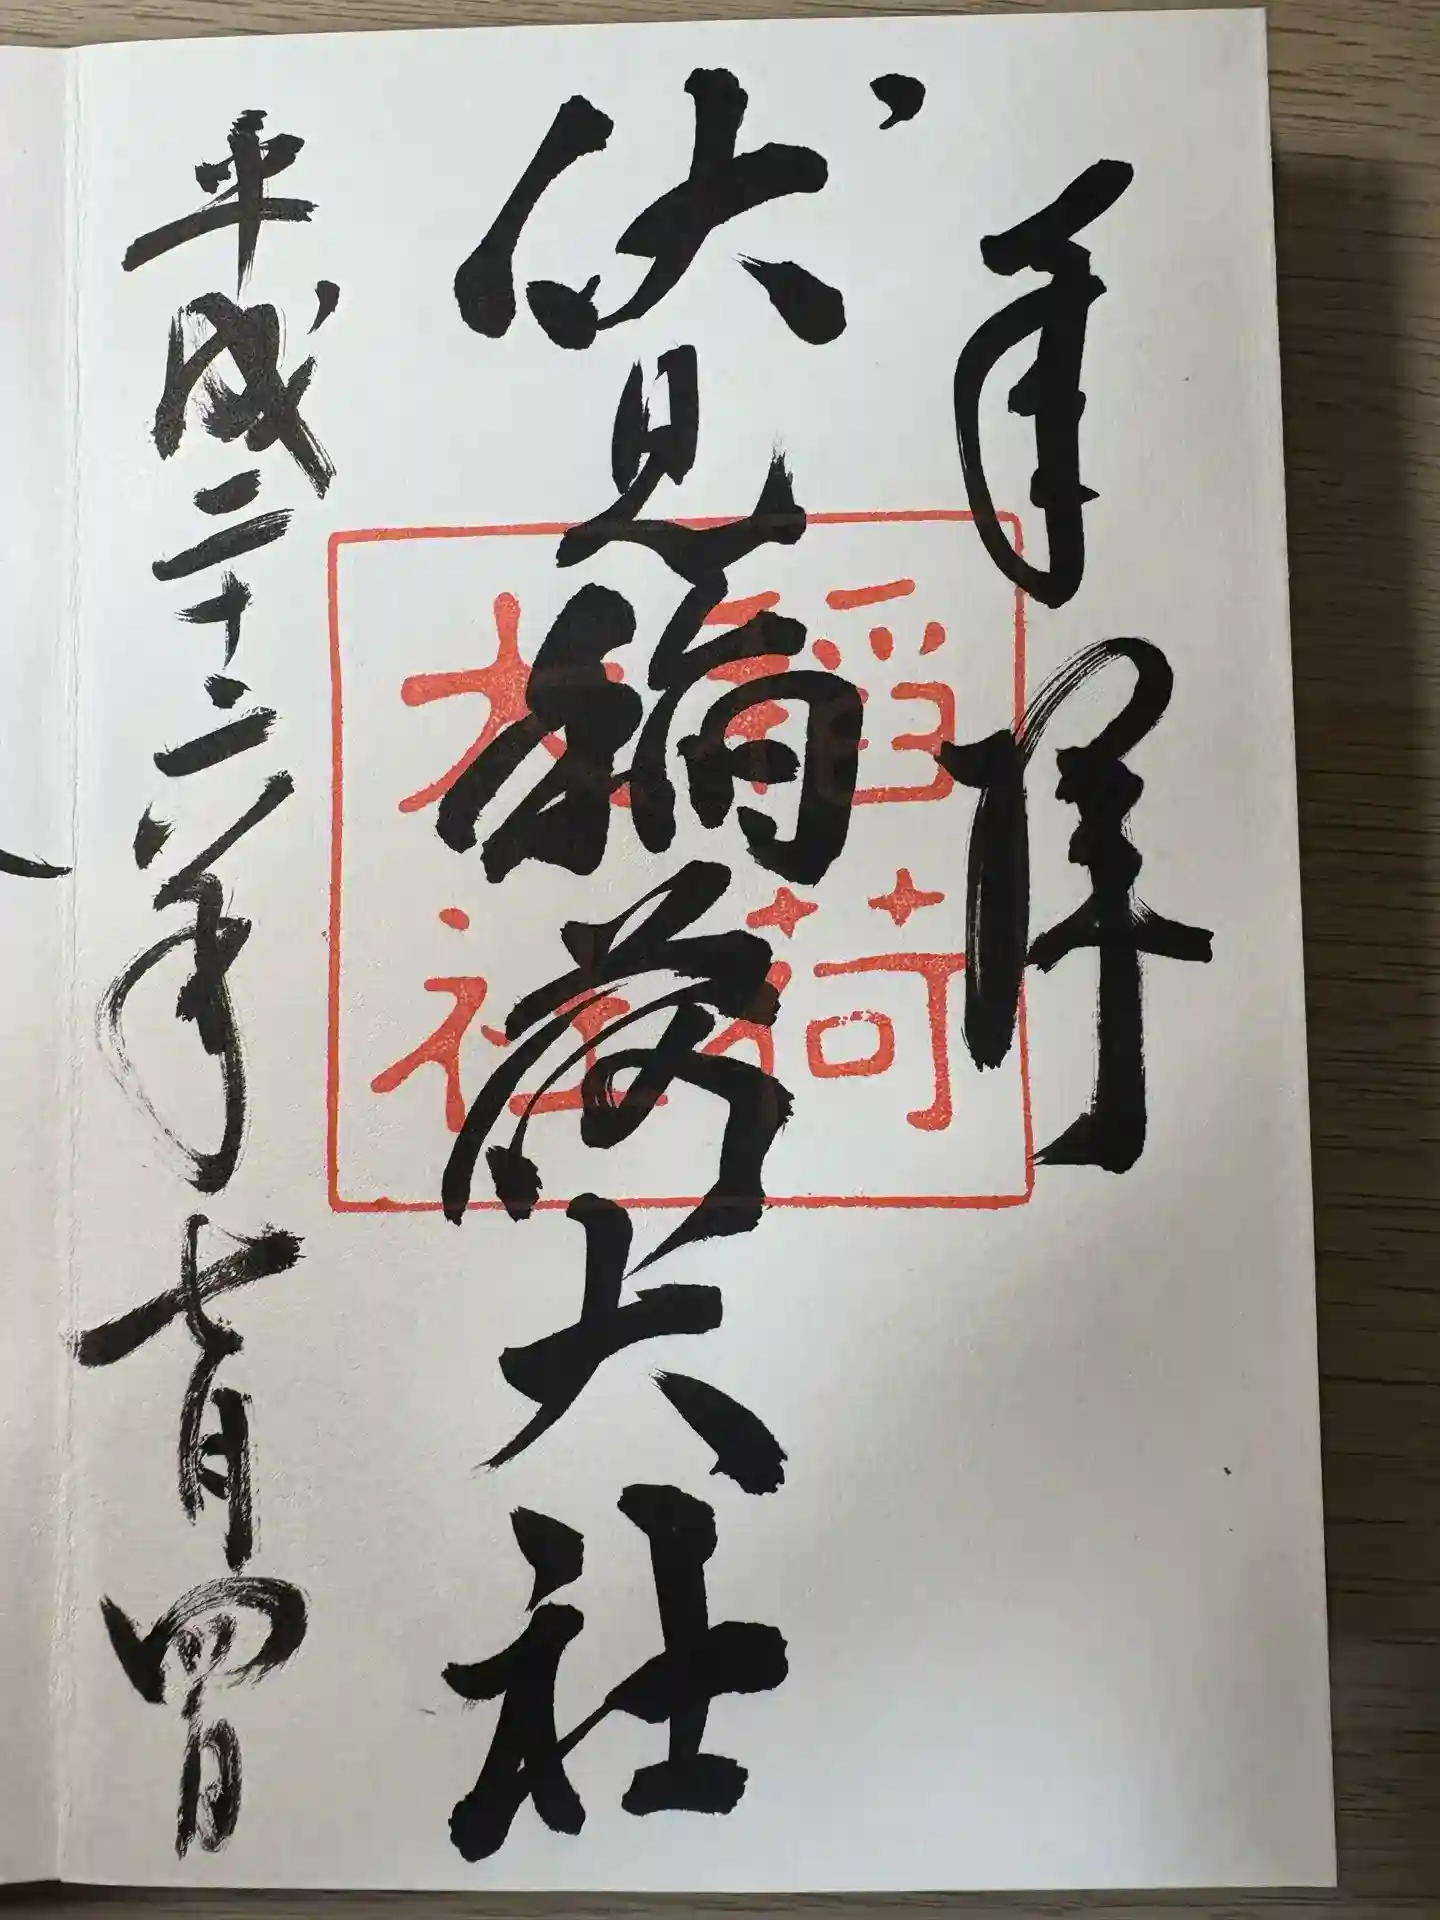 奉拝
伏見稲荷大社
稲荷
大社
平成二十二年七月四日